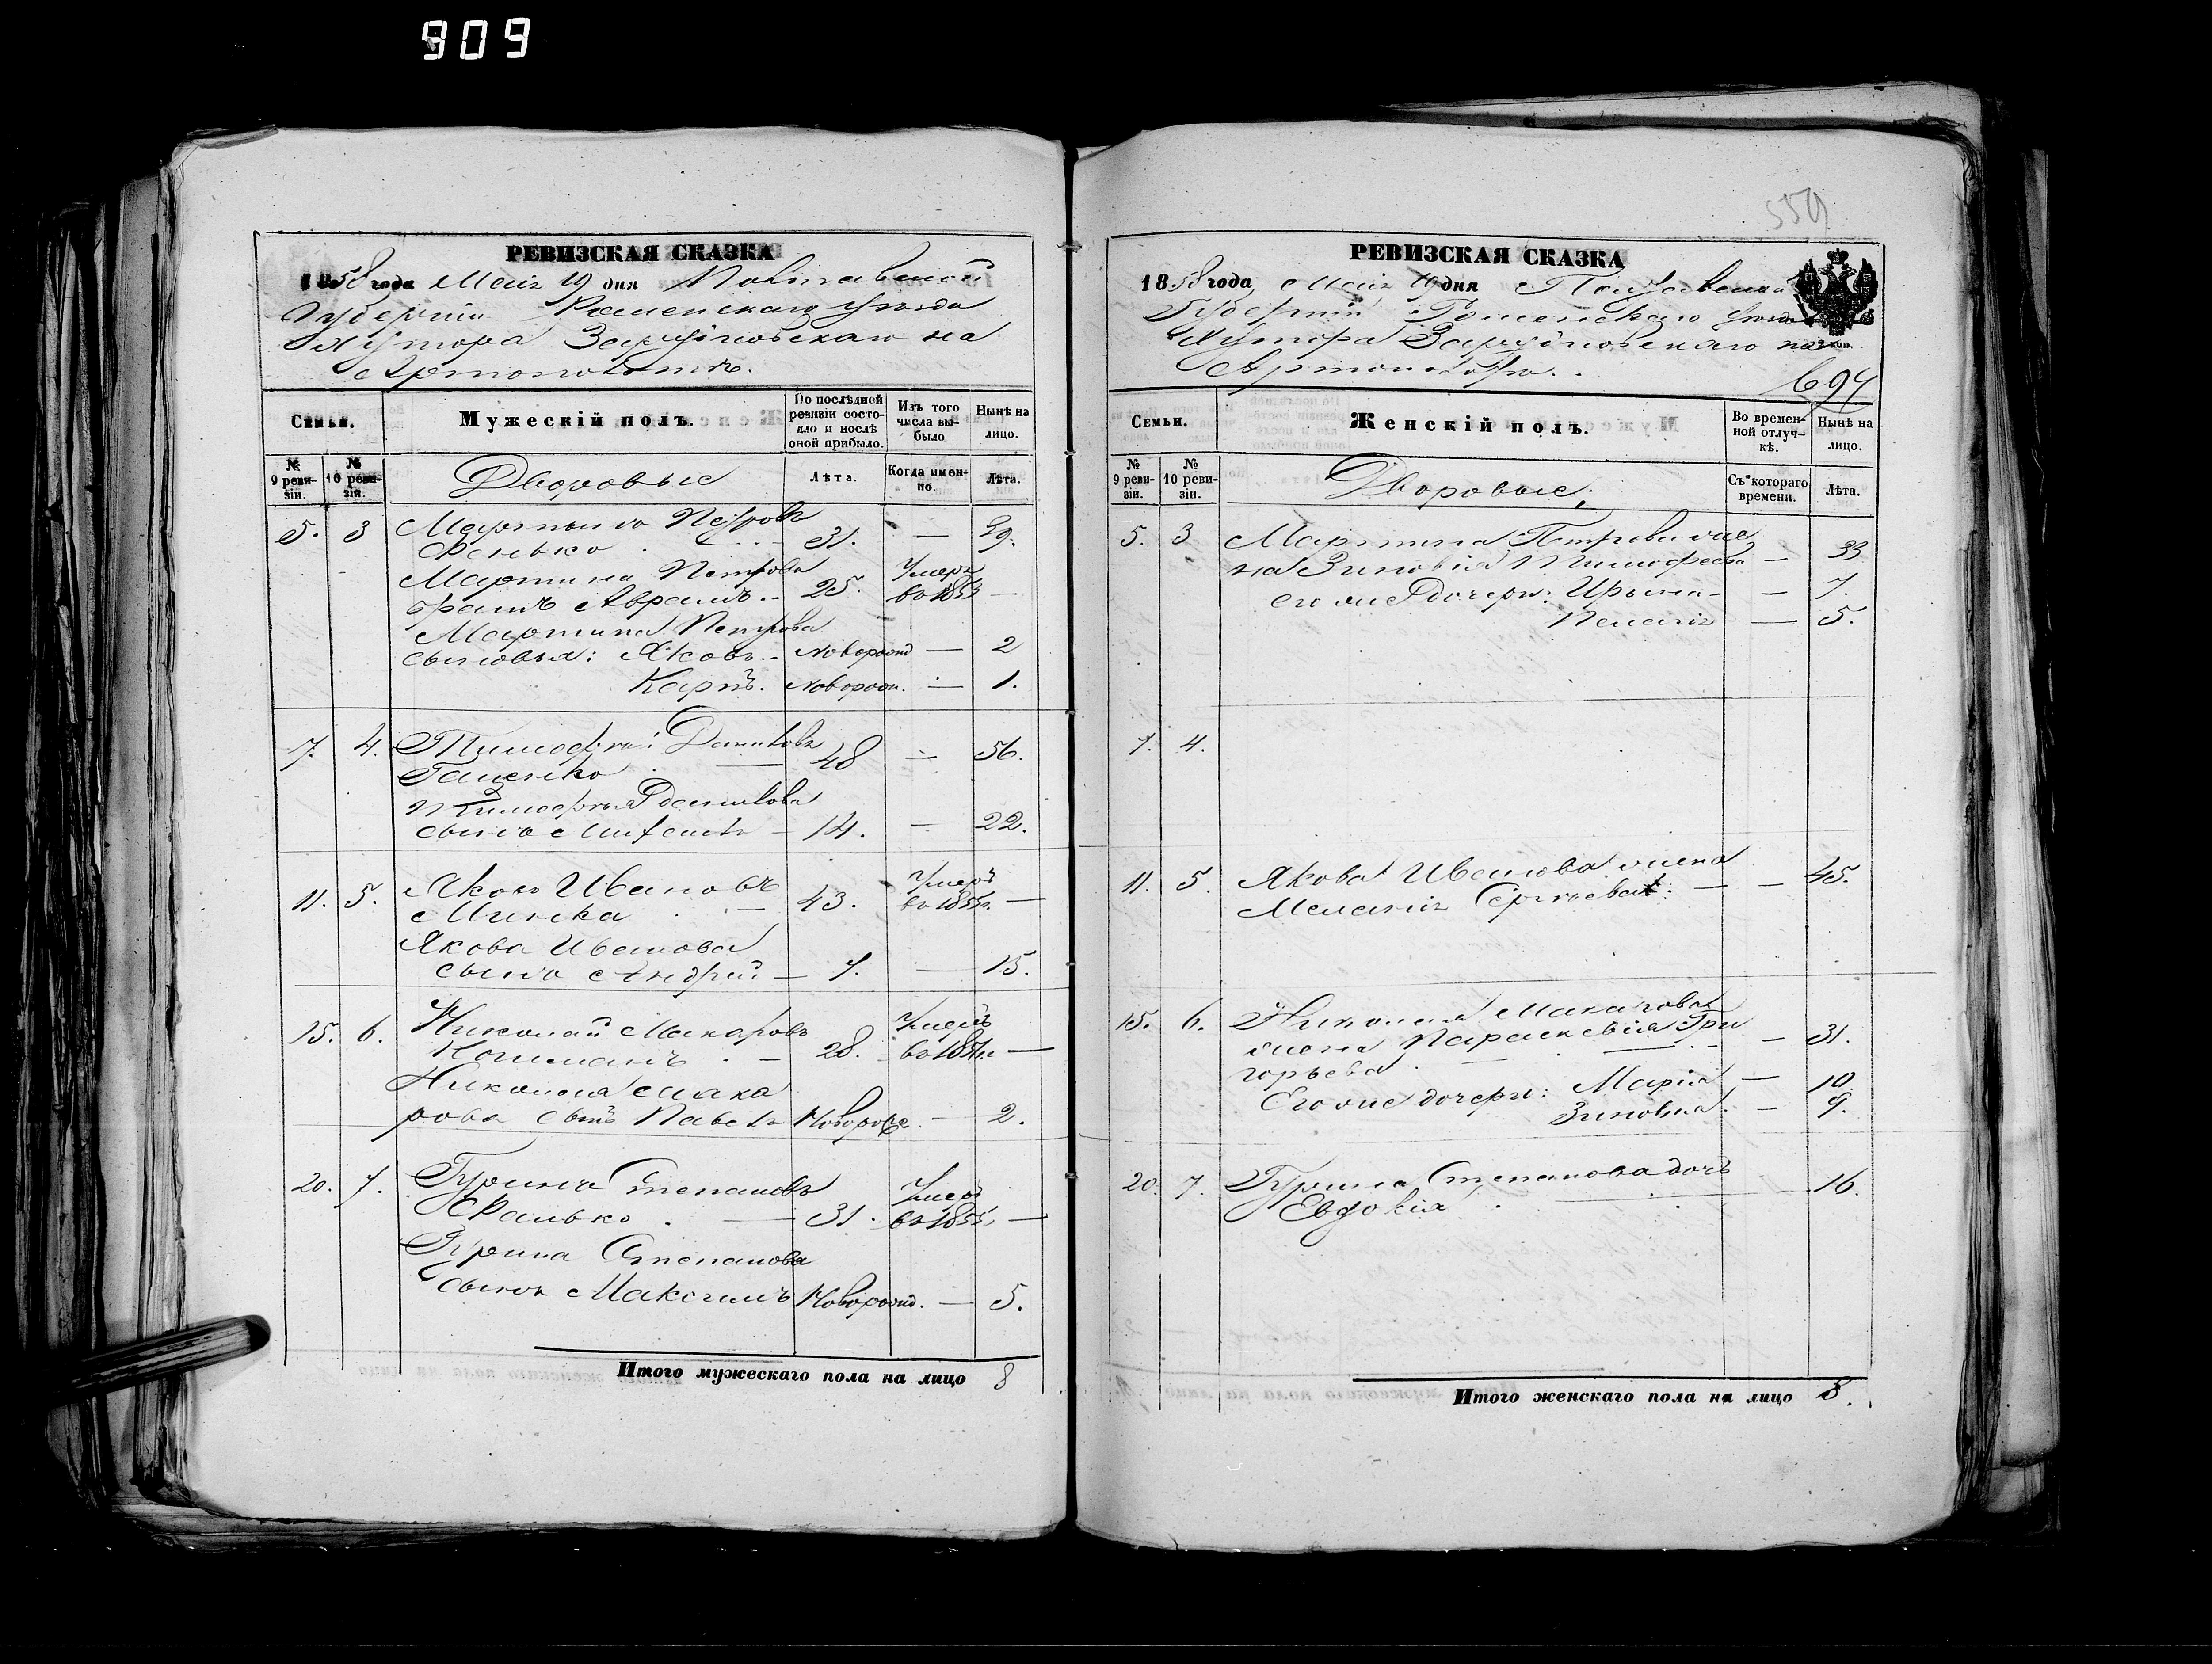 909
РЕВИЗСКАЯ СКАЗКА
1858 года Маія 19 дня Полтавской
Губерніи Роменскаго уѣзда
Хутора Заруднёвскаго на
Семьи.
Мужескій полъ.
По послѣдней ревизіи состояло и послѣ оной прибыло.
Изъ того числа выбыло
Нынѣ на лицо.
№ 9 ревизіи.
№ 10 ревизіи.
Дворовые
Лѣта.
Когда именно.
Лѣта.
5. 3 Мартынъ Петровъ
Фенько . 31. — 39.
Мартина Петрова Умеръ
братъ Аврамъ 25. въ 1855 —
Мартина Петрова
сыновья: Яковъ. - Новорожд — 2
Карпъ. Новорож. — 1.
7. 4. Тимофей Даниловъ
Гаценко 48 — 56.
Тимофея Данилова
сынъ Михаилъ — 14. — 22.
11. 5. Яковъ Ивановъ Умеръ
Минка . — 43. въ 1855. —
Якова Иванова
сынъ Андрей — 7. — 15.
15. 6. Николай Макаровъ Умеръ
28. —
Николая Мака
рова сынъ Павелъ Новорожд. — 2.
20. 7. Гуринъ Степановъ Умеръ
31. въ 1855. —
Гурина Степанова
сынъ Максимъ Новорожд. — 5.
Итого мужескаго пола на лицо 8
559
РЕВИЗСКАЯ СКАЗКА
1858 года, Маія 19 дня Полтавской
Губерніи Роменскаго уѣзда
Хутора Заруднёвскаго на
694
Семьи.
Женскій полъ.
Во временной отлучкѣ.
Нынѣ на лицо.
№ 9 ревизіи.
№ 10 ревизіи.
Дворовые;
Съ котораго времени.
Лѣта.
5. 3 Мартина Петрова же
на Зиновія Тимофеева — 33
его же дочери: Ирына - — 7.
Пелагія — 5.
7. 4.
11. 5. Якова Иванова жена
Меланія Сергеева: — — 45.
15. 6. Николая Макарова
жена Параскевія Гри — 31.
горьева .
Его же дочери: Марія — 10.
Зиновія. — 9.
20. 7. Гурина Степанова дочь
Евдокія . 16.
Итого женскаго пола на лицо 8.